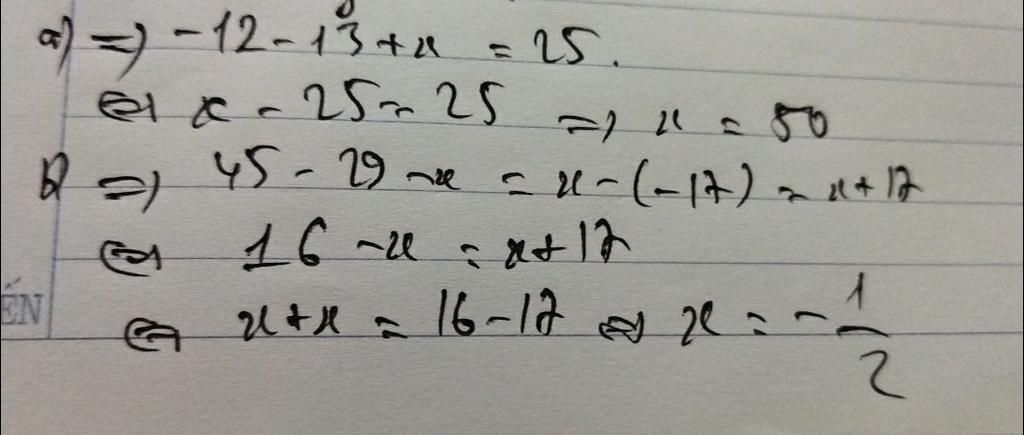 a) => -12 - 13 + x = 25.
<=> x - 25 = 25 => x = 50
b) => 45 - 29 - x = x - (-17) = x + 17
<=> 16 - x = x + 17
ÉN
<=> x + x = 16 - 17 <=> x = -1/2